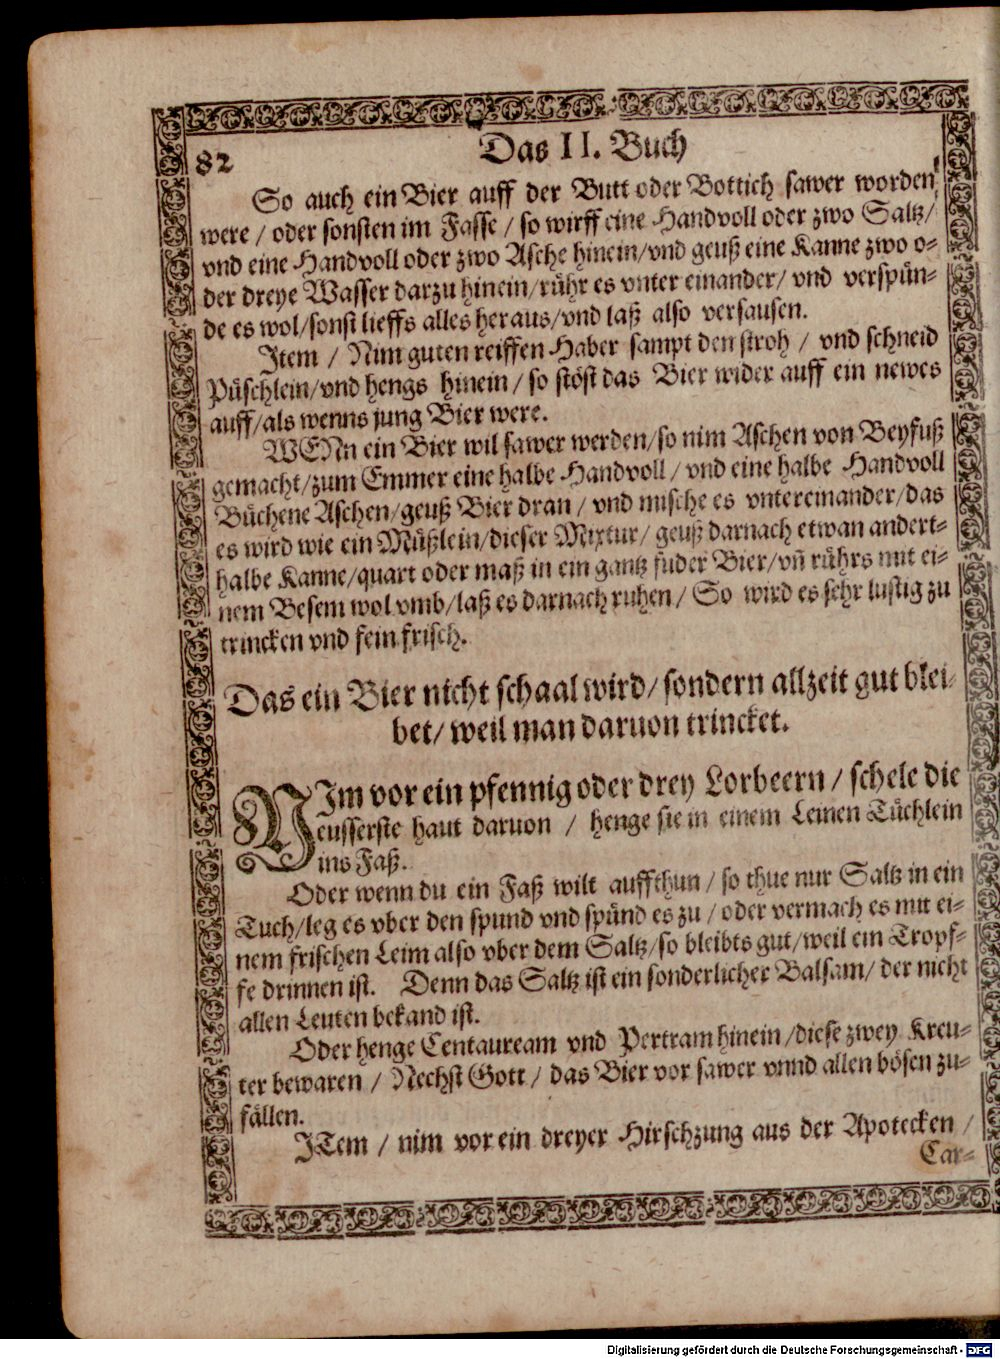 82
Das II. Buch
So auch ein Bier auff der Butt oder Bottich sawer worden
were / oder sonsten im Fasse / so wirff eine Handvoll oder zwo Saltz /
vnd eine Handvoll oder zwo Asche hinein / vnd geuß eine Kanne zwo o-
der dreye Wasser darzu hinein / rühr es vnter einander / vnd verspün-
de es wol / sonst lieffs alles heraus / vnd laß also versausen.
Item / Nim guten reiffen Haber sampt den stroh / vnd schneid
Püschlein / vnd hengs hinein / so stöst das Bier wider auff ein newes
auff / als wenns jung Bier were.
WENn ein Bier wil sawer werden / so nim Aschen von Beyfuß
gemacht / zum Emmer eine halbe Handvoll / vnd eine halbe Handvoll
Büchene Aschen / geuß Bier dran / vnd mische es vntereinander / das
es wird wie ein Müßlein / dieser Mixtur / geuß darnach etwan andert-
halbe Kanne / quart oder maß in ein gantz fuder Bier / vñ rührs mit ei-
nem Besem wol vmb / laß es darnach ruhen / So wird es sehr lustig zu
trincken vnd fein frisch.
Das ein Bier nicht schaal wird / sondern allzeit gut blei-
bet / weil man daruon trincket.
NIm vor ein pfennig oder drey Lorbeern / schele die
eusserste haut daruon / henge sie in einem Leinen Tüchlein
ins Faß.
Oder wenn du ein Faß wilt auffthun / so thue nur Saltz in ein
Tuch / leg es vber den spund vnd spünd es zu / oder vermach es mit ei-
nem frischen Leim also vber dem Saltz / so bleibts gut / weil ein Tropf-
fe drinnen ist. Denn das Saltz ist ein sonderlicher Balsam / der nicht
allen Leuten bekand ist.
Oder henge Centauream vnd Pertram hinein / diese zwey Kreu-
ter bewaren / Nechst Gott / das Bier vor sawer vnnd allen bösen zu-
fällen.
ITem / nim vor ein dreyer Hirschzung aus der Apotecken /
Car-
Digitalisierung gefördert durch die Deutsche Forschungsgemeinschaft - DFG